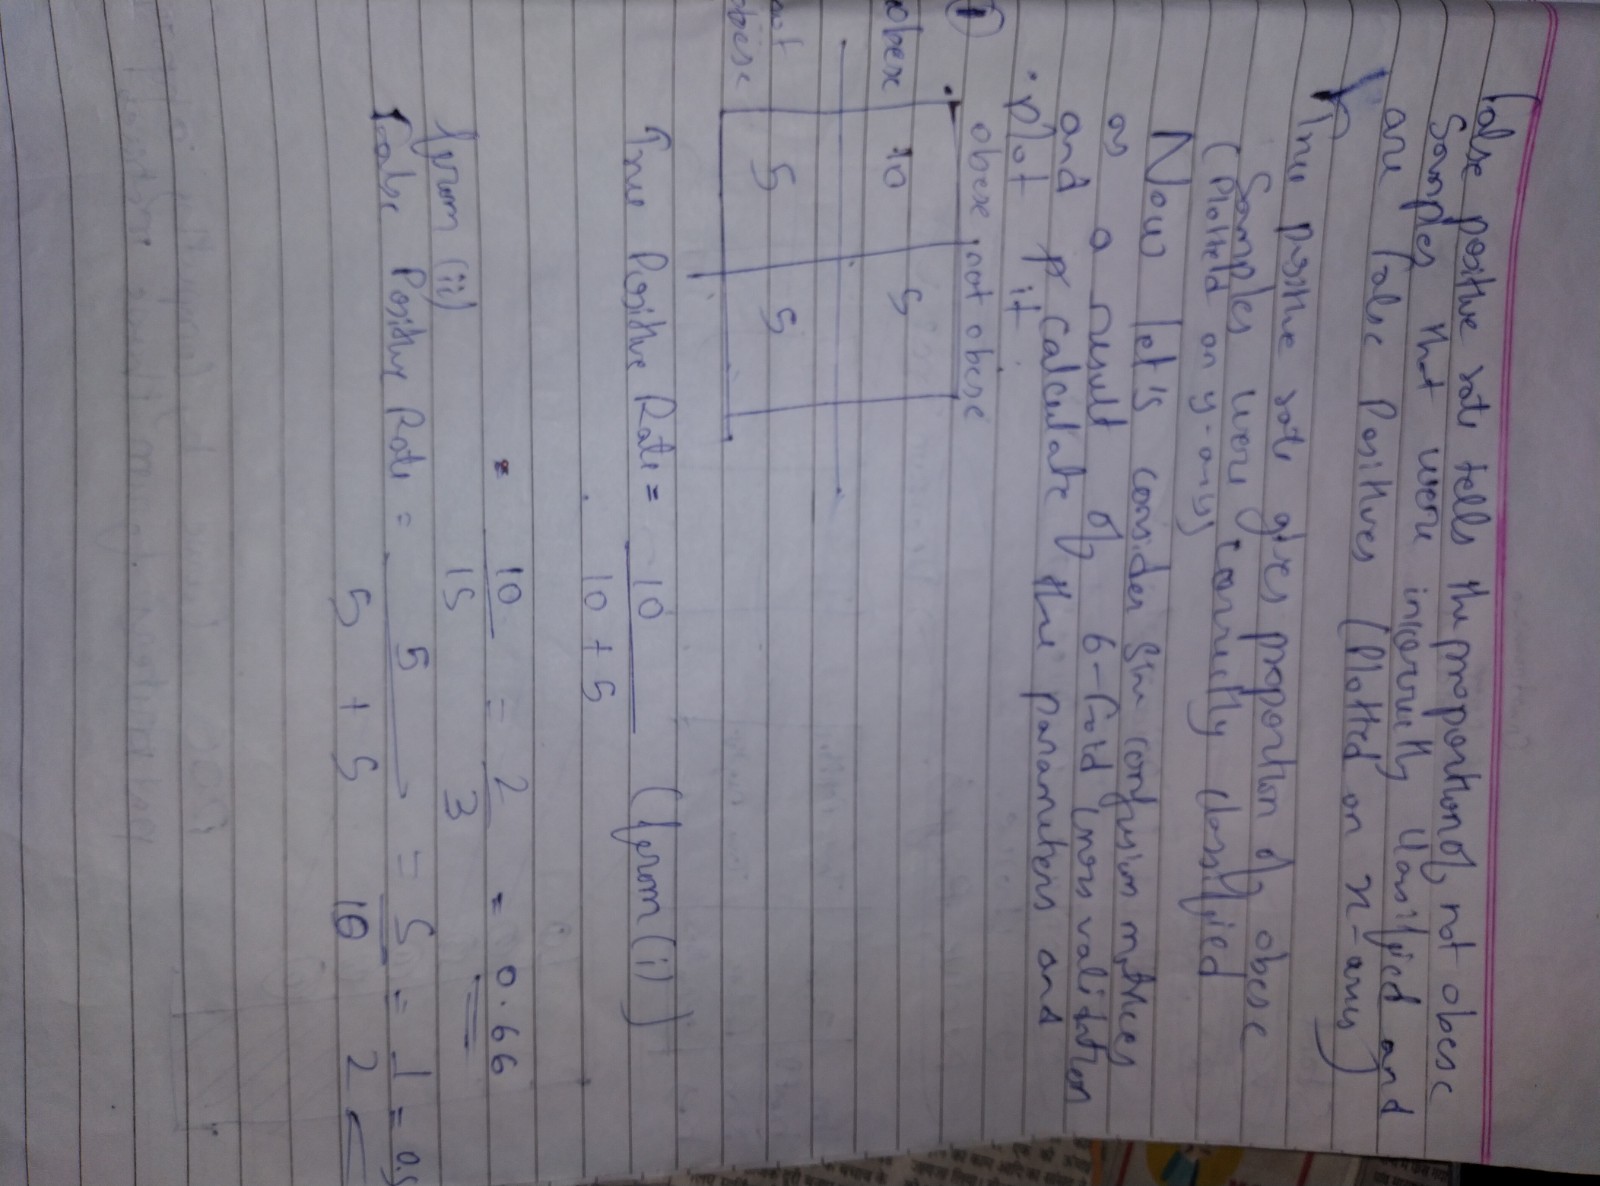 False positive rate tells the proportion of not obese
Samples that were incorrectly classified and
are False Positives (Plotted on x-axis)
True positive rate gives proportion of obese
Samples were correctly classified
(Plotteld on y-axis)
Now let's consider six confusion matrices
as a result of 6-fold cross validation
and p calculate the parameters and
plot it.
1
obese not obese
obese 10 5
not
obese 5 5
True Positive Rate = 10 / 10 + 5 (from (i))
= 10 / 15 = 2 / 3 = 0.66
from (ii)
False Positive Rate = 5 / 5 + 5 = 5 / 10 = 1 / 2 = 0.5